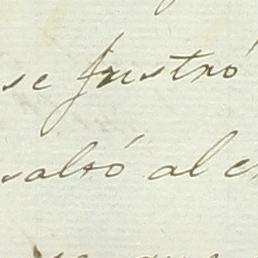 se frustró
saltó al e